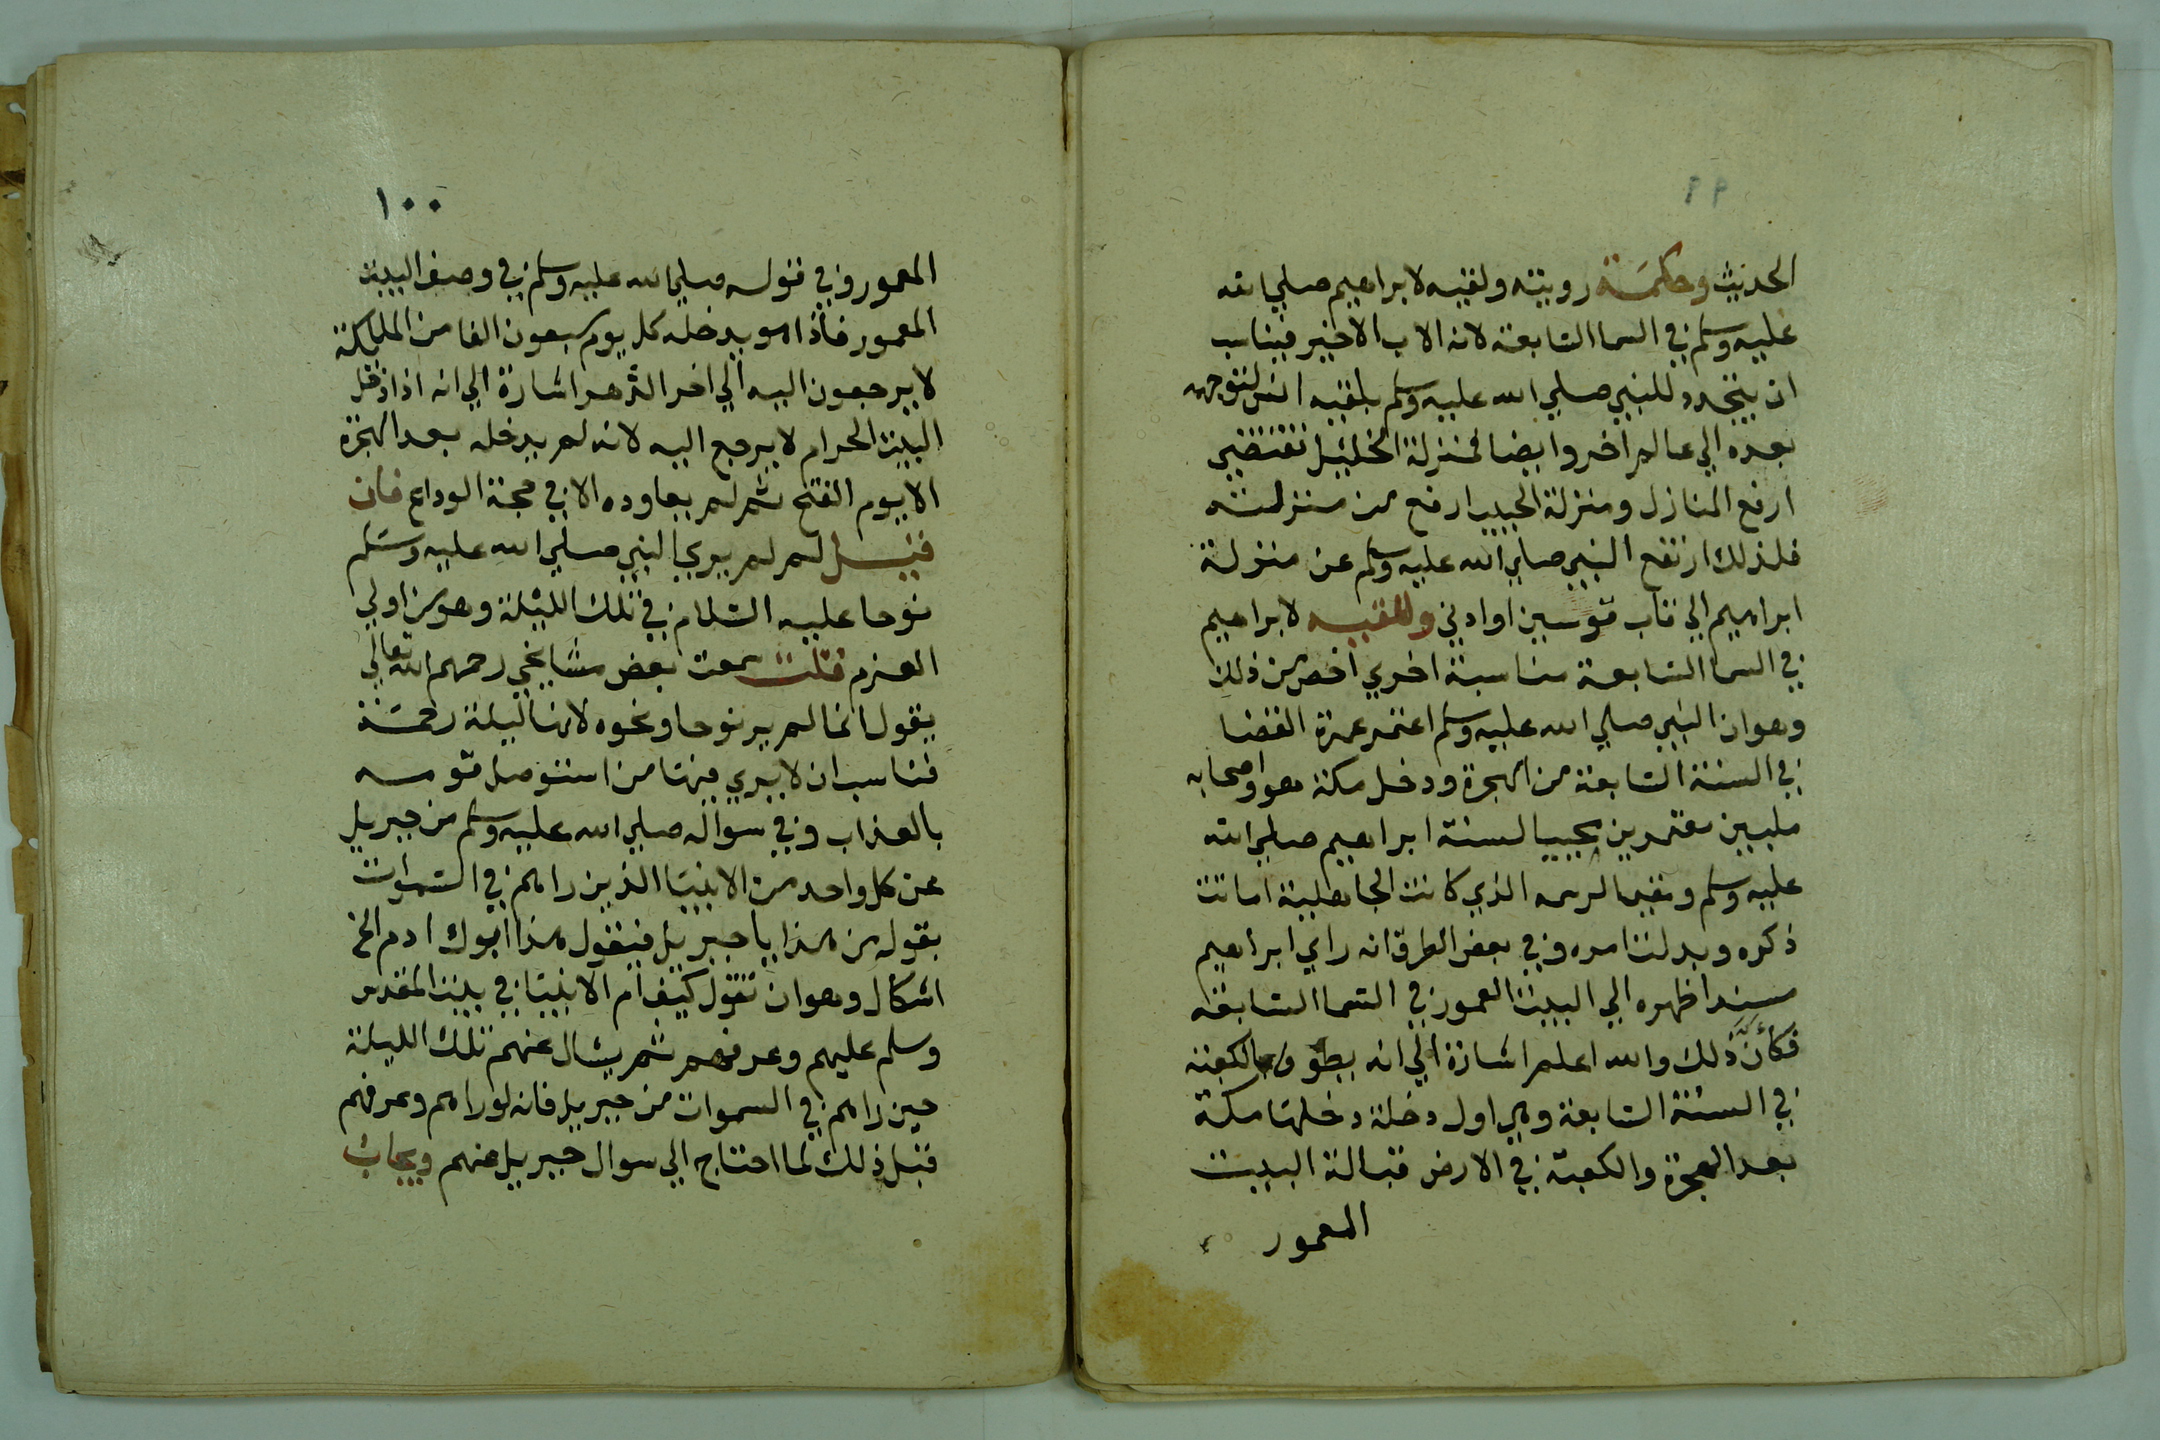 ٩٩
الحديث وحكمة رويته ولقيه لابراهيم صلى الله
عليه وسلم في السما السابعة لانه الاب الاخير فيناسب
ان يتجدد للنبي صلي الله عليه وسلم بلقيه انس لتوجهه
بعده الي عالم اخر وايضا فمنزلة الخليل تقتضي
ارفع المنازل ومنزلة الحبيب ارفع من منزلته
فلذلك ارتفع النبي صلي الله عليه وسلم عن منزلة
ابراهيم الي قاب قوسين او ادني وللقيه لابراهيم
في السما السابعة مناسبة اخري اخص من ذلك
وهو ان النبي صلي الله عليه وسلم اعتمر عمرة القضا
في السنة السابعة من الهجرة ودخل مكة هو واصحابه
ملبين معتمرين محييا لسنة ابراهيم صلي الله
عليه وسلم ومقيما لرسمه الذي كانت الجاهلية اماتت
ذكره وبدلت امره وفي بعض الطرق انه راي ابراهيم
مسندا ظهره الي البيت المعمور في السما السابعة
فكأنّ ذلك والله اعلم اشارة الي انه يطوف بالكعبة
في السنة السابعة وهي اول دخلة دخلها مكة
بعد الهجرة والكعبة في الارض قبالة البيت
المعمور
١٠٠
المعمور وفي قوله صلي الله عليه وسلم في وصف البيت
المعمور فاذا هو يدخله كل يوم سبعون الفا من الملايكة
لا يرجعون اليه الي اخر الدهر اشارة الي انه اذا دخل
البيت الحرام لا يرجع اليه لانه لم يدخله بعد الهجرة
الا يوم الفتح ثم لم يعاوده الا في حجة الوداع فان
قيل لم لم يري النبي صلي الله عليه وسلم
نوحا عليه السلام في تلك الليلة وهو من اولي
العزم قلت سمعت بعض مشايخي رحمهم الله تعالي
يقول انما لم ير نوحا ونحوه لانها ليلة رحمة
فناسب ان لا يري فيها من استوصل قومه
بالعذاب وفي سواله صلي الله عليه وسلم من جبريل
عن كل واحد من الانبيا الذين راهم في السموات
بقوله من هذا يا جبريل فيقول هذا ابوك ادم الخ
اشكال وهو ان تقول كيف ام الانبيا في بيت المقدس
وسلم عليهم وعرفهم ثم يسال عنهم تلك الليلة
حين راهم في السموات من جبريل فانه لو راهم وعرفهم
قبل ذلك لما احتاج الي سوال جبريل عنهم ويجاب